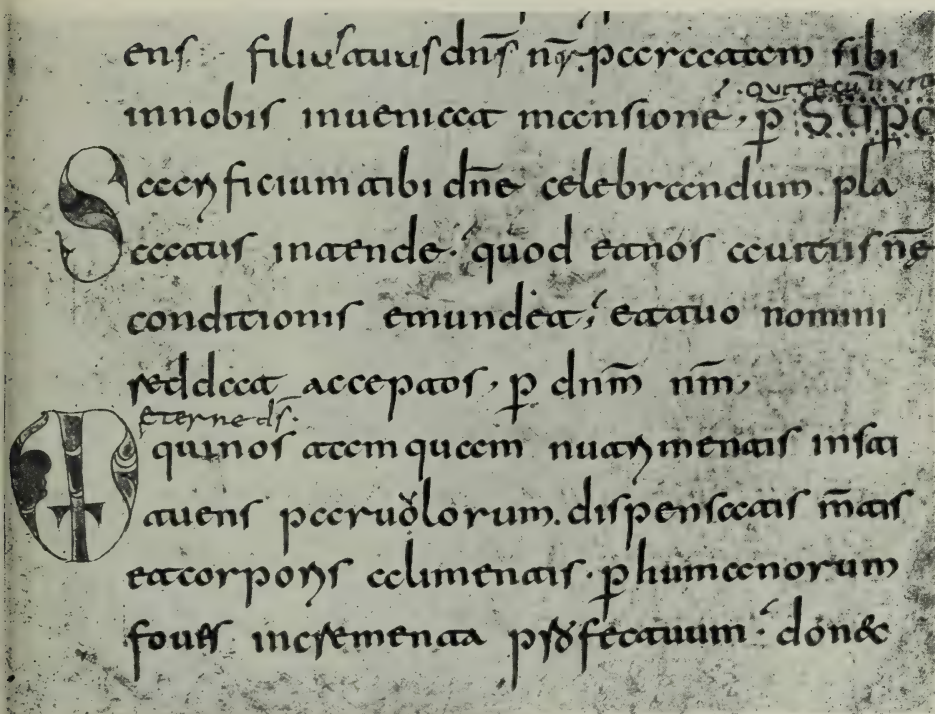 ens filius tuus dn̄s nr̄. paratam sibi
in nobis inueniat mansionē, p̄
. QUI TECU
Sacrificium tibi dn̄e celebrandum. pla
catus intende. quod et nos a uitiis nr̄e
conditionis emundet, et tuo nomini
reddat acceptos, p̄ dnm̄ nm̄,
eterne ds̄.
qui nos tamquam nutrimentis insti
tuens paruolorum. dispensatis m̄tis
et corporis alimentis. p̄ humanorum
foues incrementa profectuum. donec